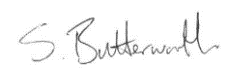 S. Butterworth